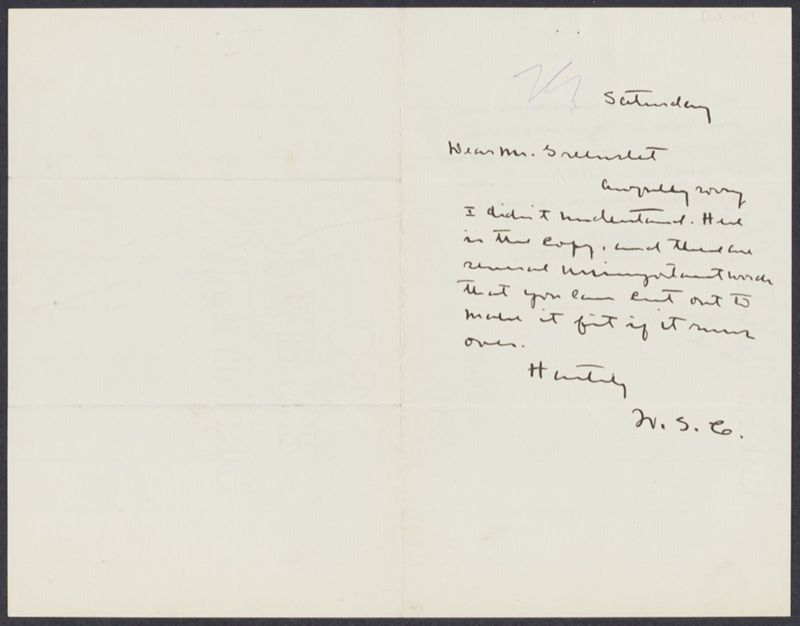 Saturday
Dear Mr. Greenslet
Awfully sorry
I didn't understand. Here
is the copy, and there are
several unimportant words
that you can cut out to
make it fit if it runs
over.
Heartily
W. S. C.